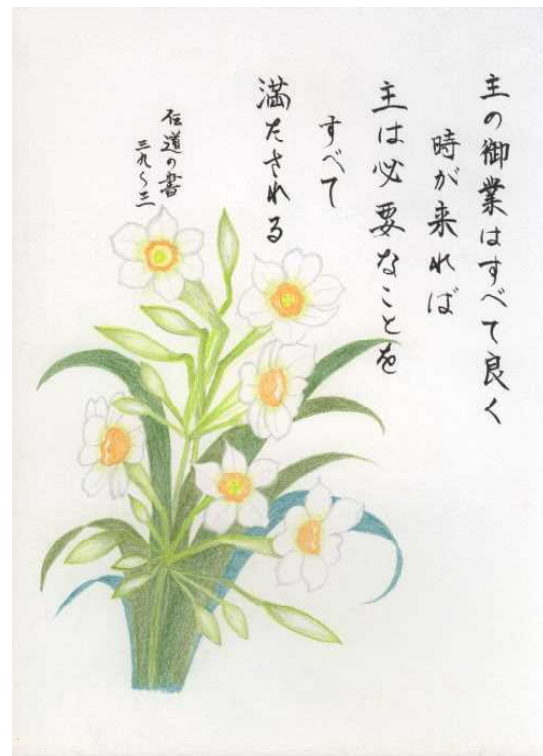 主の御業はすべて良く
時が来れば
主は必要なことを
すべて
満たされる
伝道の書
三九〜三